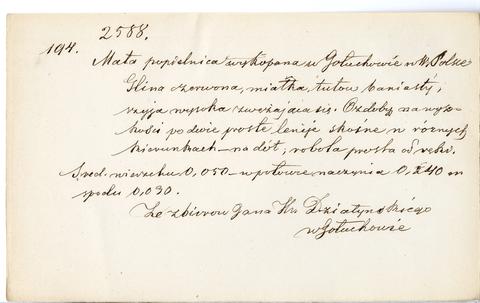 2588.
194.
Mała popielnica wykopana w Gołuchowie w W. Polsce
Glina czerwona, miałka, tułow baniasty,
szyja wysoka zwężająca się. Ozdoby na wyso-
kości po dwie proste lenije skośne w różnych
kierunkach – na dół, robota prosta od ręku.
Śred. wierzchu 0,050 – w połowie naczynia 0,240 m
spodu 0,090.
Ze zbiorow Pana Hr. Działyńskiégo
w Gołuchowie